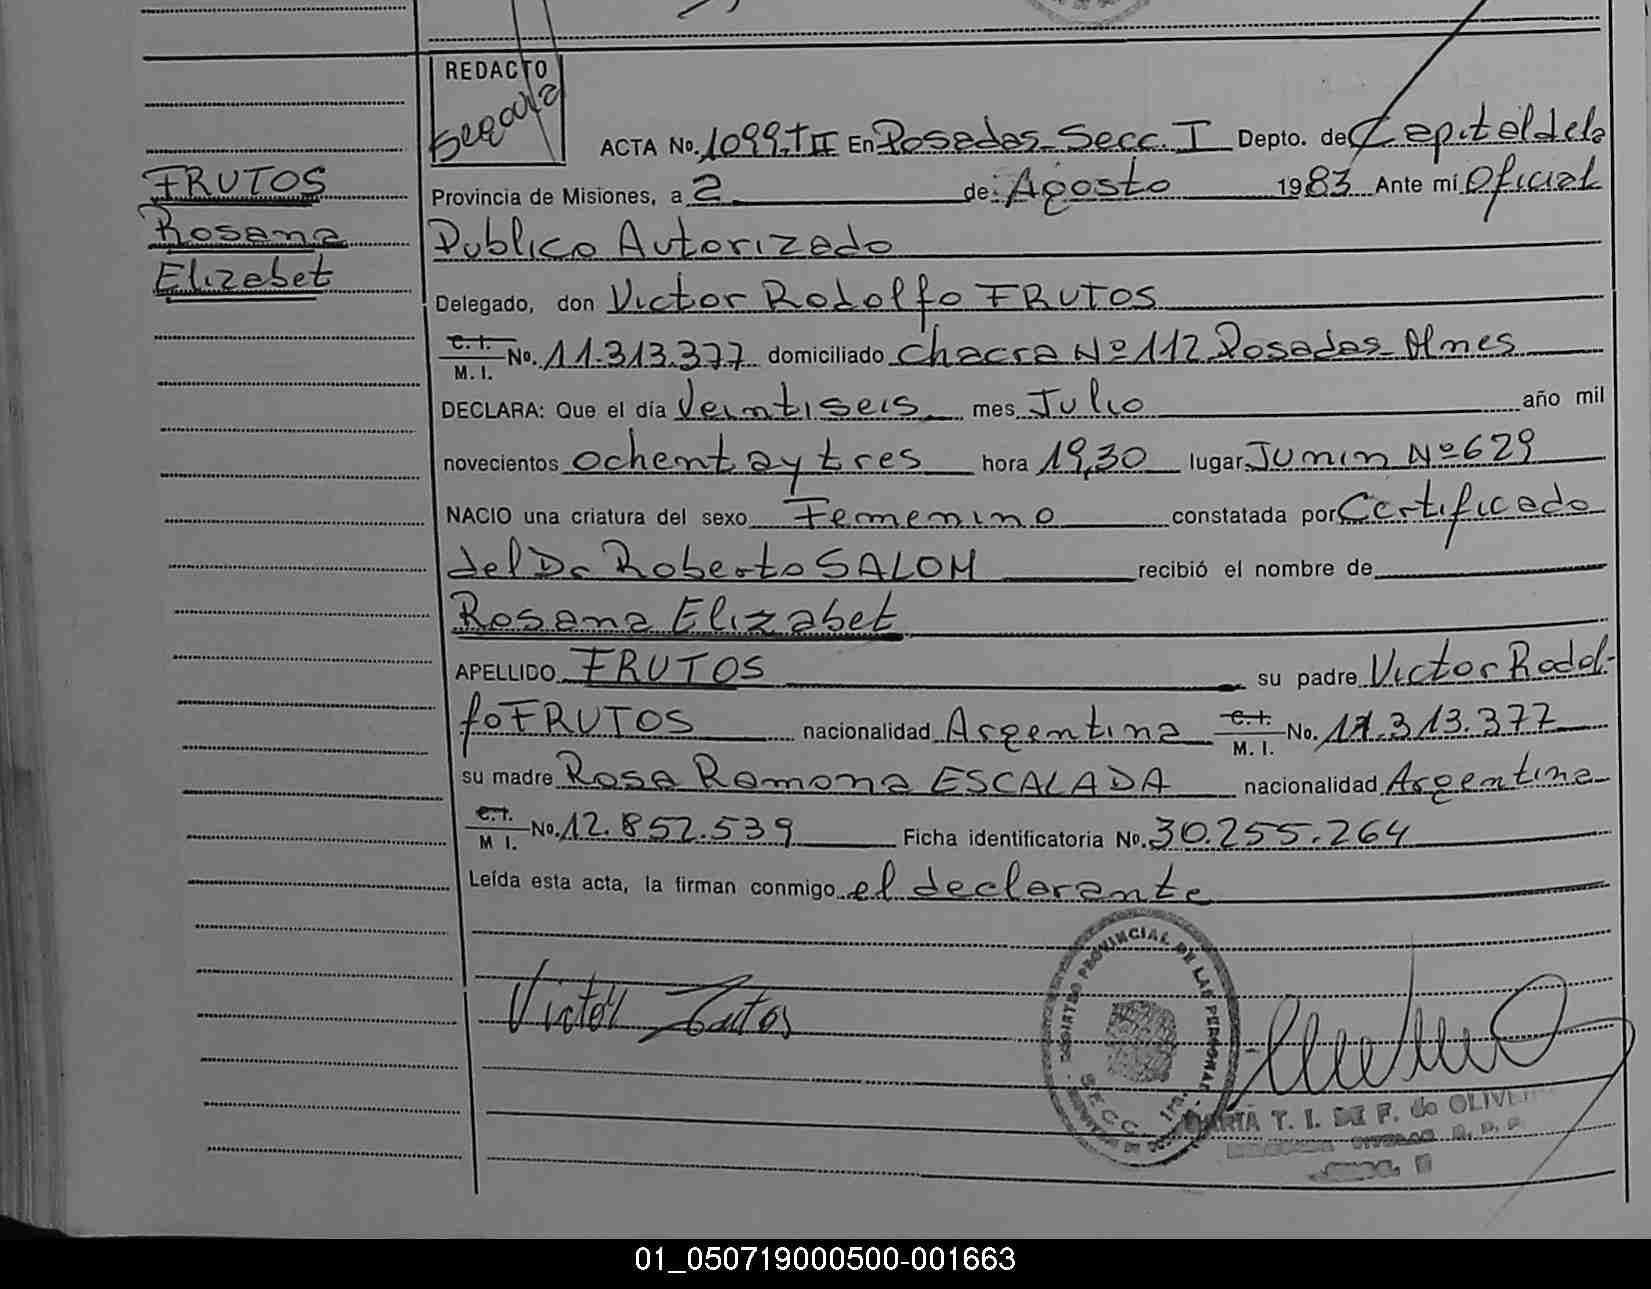 REDACTO
FRUTOS
Rosana
Elizabet
ACTA No. 1099 T II En Posadas Secc. I Depto. de Capital de la
Provincia de Misiones, a 2 de Agosto 1983 Ante mí Oficial
Publico Autorizado
Delegado, don Victor Rodolfo FRUTOS
C.I.
M. I. No. 11.313.377 domiciliado Chacra Nº 112 Posadas Mnes
DECLARA: Que el día Veintiseis mes Julio año mil
novecientos ochenta y tres hora 19,30 lugar Junin Nº 629
NACIO una criatura del sexo Femenino constatada por Certificado
del Dr Roberto SALOM recibió el nombre de
Rosana Elizabet
APELLIDO FRUTOS su padre Victor Rodol-
fo FRUTOS nacionalidad Argentina C.I.
M. I. No. 11.313.377
su madre Rosa Ramona ESCALADA nacionalidad Argentina
C.I.
M I. No. 12.852.539 Ficha identificatoria No. 30.255.264
Leída esta acta, la firman conmigo el declarante
Victor Frutos
REGISTRO PROVINCIAL DE LAS PERSONAS
SECC.
MARTA T. I. DE F. de OLIVEI
01_050719000500-001663